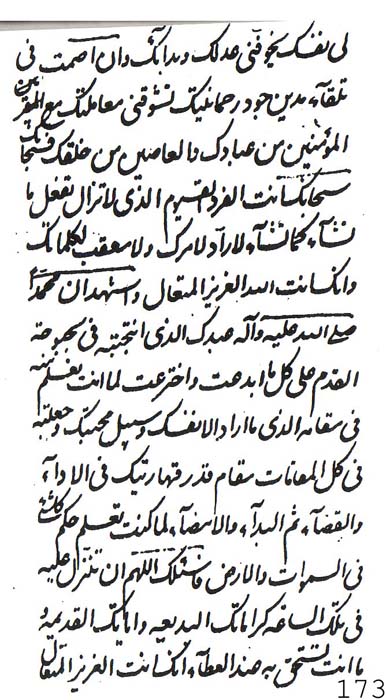 لی نفسک یخوفنی عدلک و بدایک وان اصمت فی
تلقآء مدین جود رحمانیتک تشوقنی معاملتک مع المقربین
المؤمنین من عبادک والعاصین من خلقک فسبحانک
سبحانک انت الفرد القیوم الذی لاتزال تفعل ما
تشآء کماتشآء لاراد لامرک ولا معقب لکلماتک
وانک انت الله العزیز المتعال واشهد ان محمدا
صلی الله علیه وآله عبدک الذی انتجبته فی بحبوحة
القدم علی کل ما ابدعت واخترعت لما انت تعلم منه
فی مقامه الذی مااراد الا نفسک وسبیل محبتک وجعلته
فی کل المقامات مقام قدر قهاریتک فی الادآء
والقضآء ثم البدآء والامضآء لما کنت تعلم حکم کلشئ
فی السموات والارض فاسئلک اللهم ان تنزل علیه
فی تلک الساعة کراماتک البدیعه وایاتک القدیمة و
ما انت تستحق به عند العطآء انک انت العزیز المتعال
173